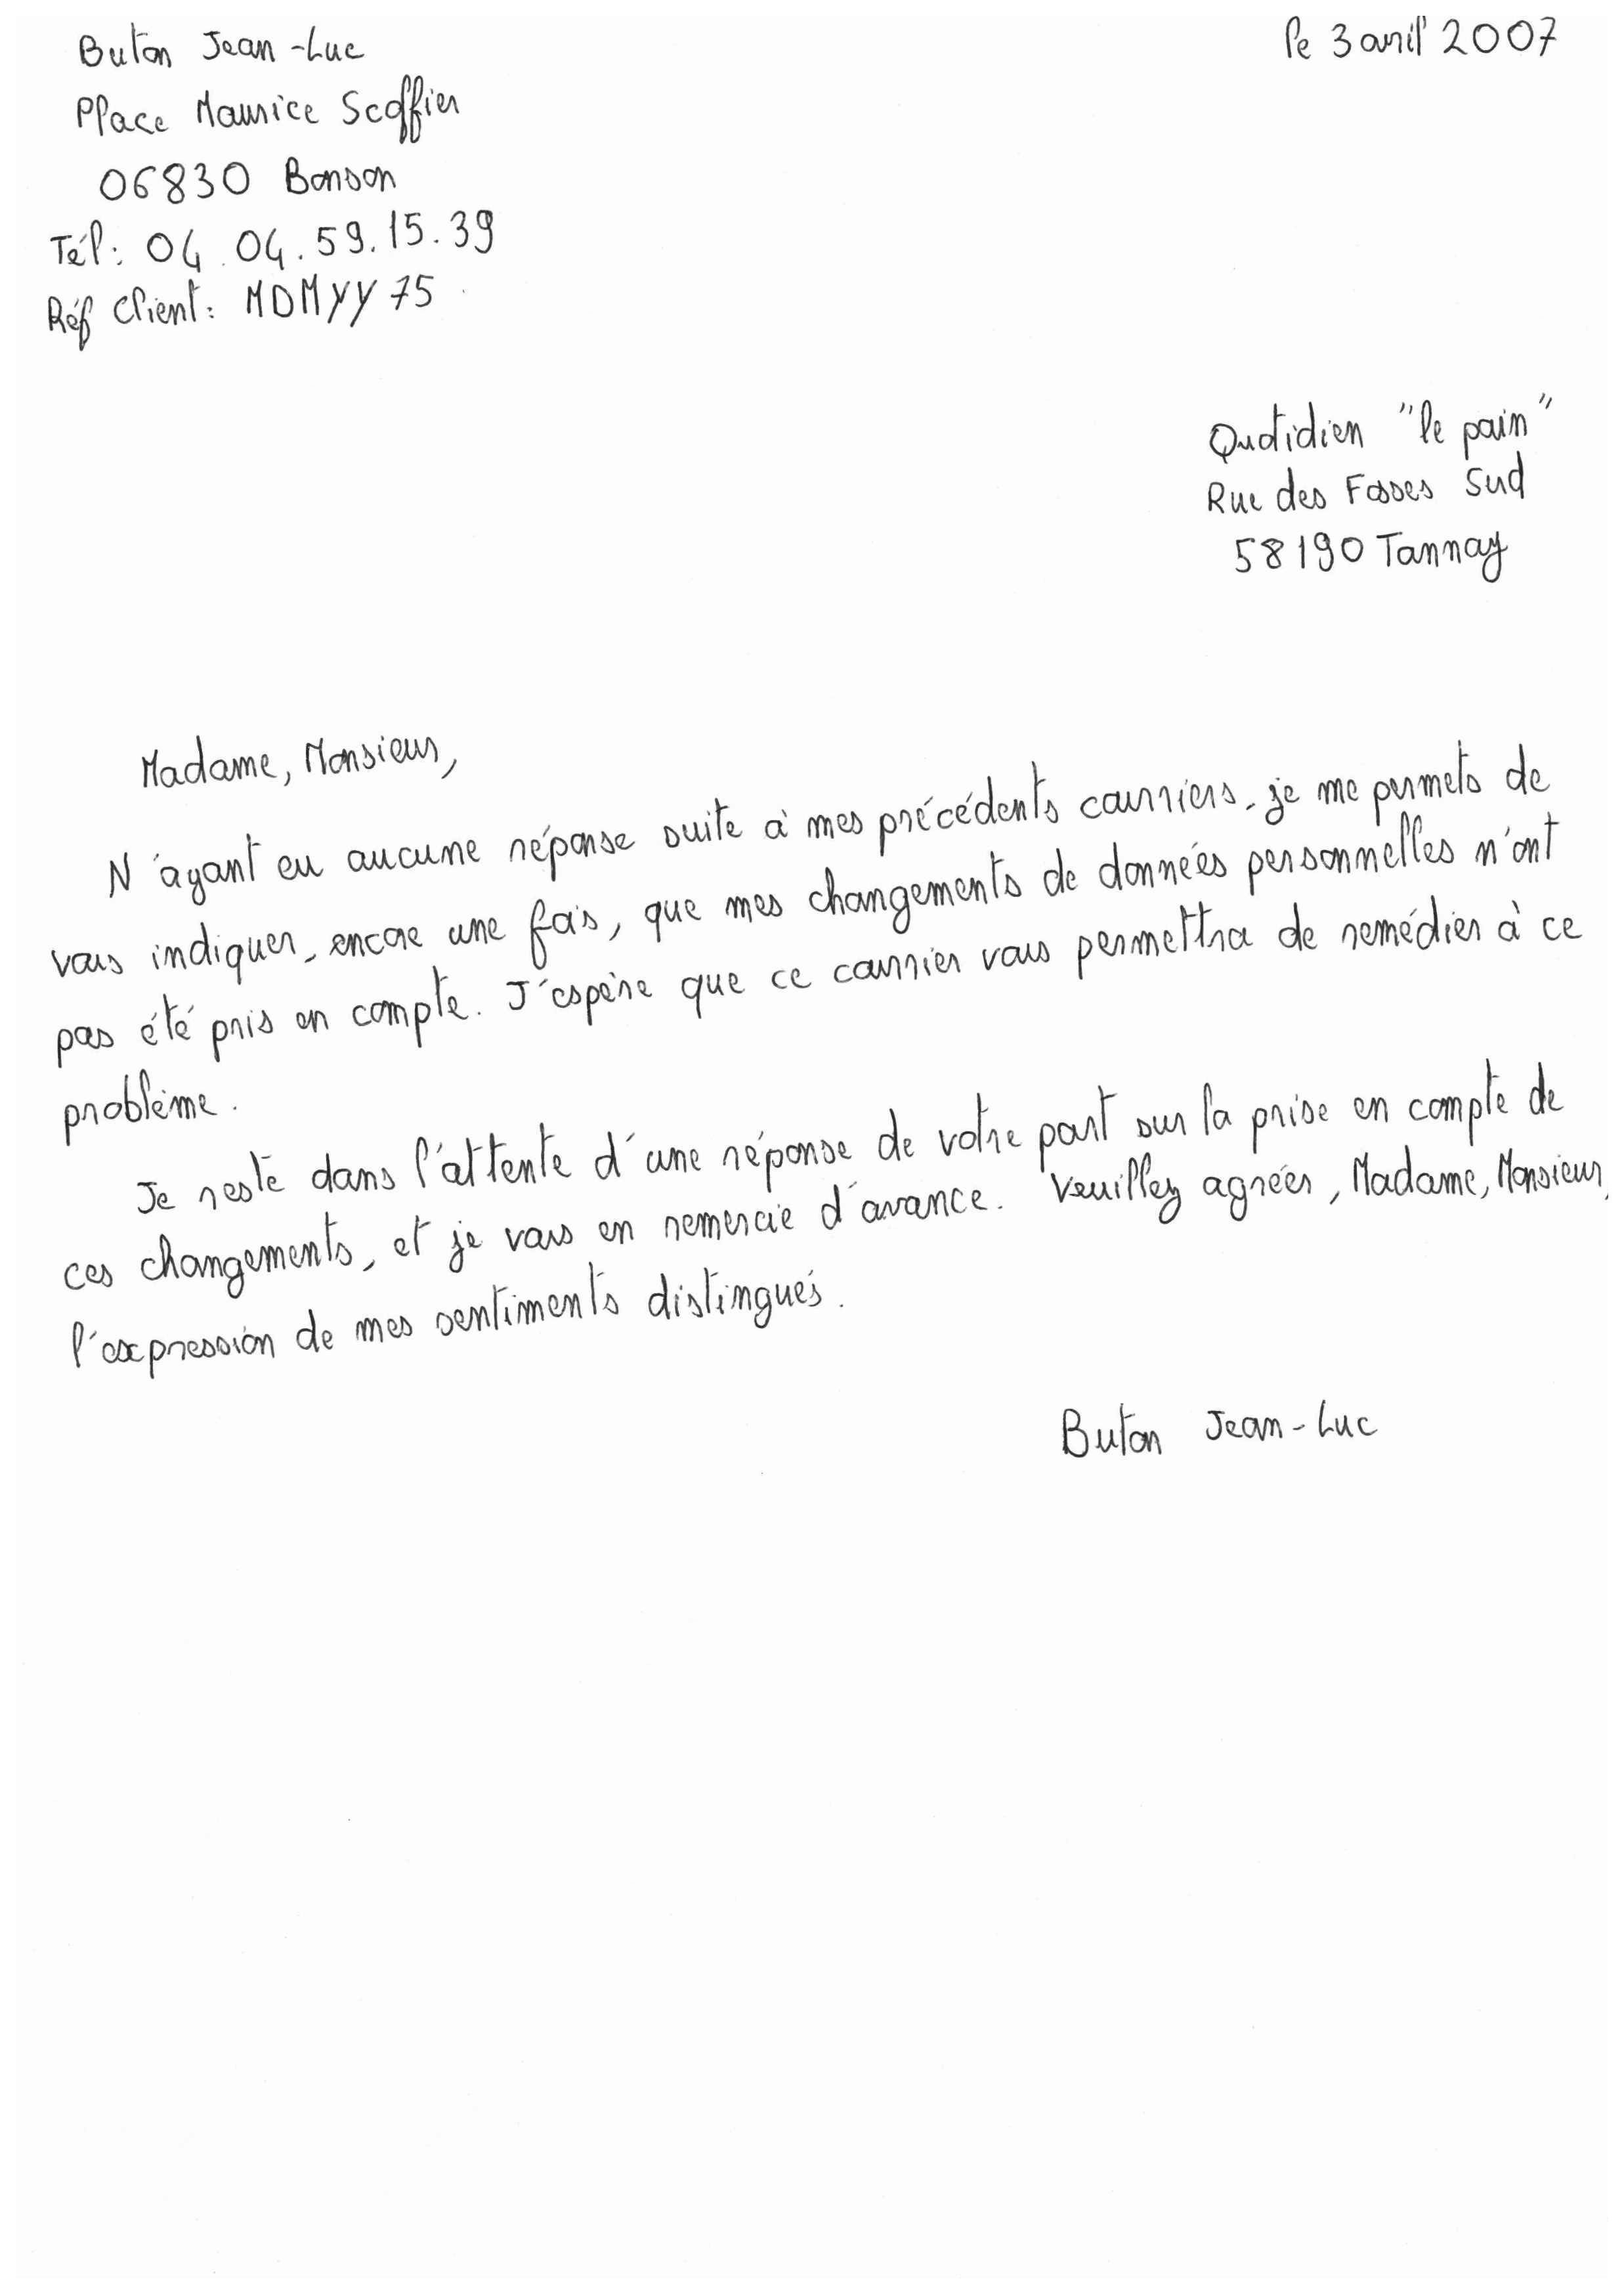 Buton Jean-Luc
le 3 avril 2007
Place Maurice Scoffier
06830 Bonson
Tél: 04.04.59.15.39
Réf Client: MDMYY75
Quotidien "le pain"
Rue des Fosses Sud
58190 Tannay
Madame, Monsieur,
N'ayant eu aucune réponse suite à mes précédents courriers, je me permets de
vous indiquer, encore une fois, que mes changements de données personnelles n'ont
pas été pris en compte. J'espère que ce courrier vous permettra de remédier à ce
problème.
Je reste dans l'attente d'une réponse de votre part sur la prise en compte de
ces changements, et je vous en remercie d'avance. Veuillez agréer, Madame, Monsieur,
l'expression de mes sentiments distingués.
Buton Jean-Luc